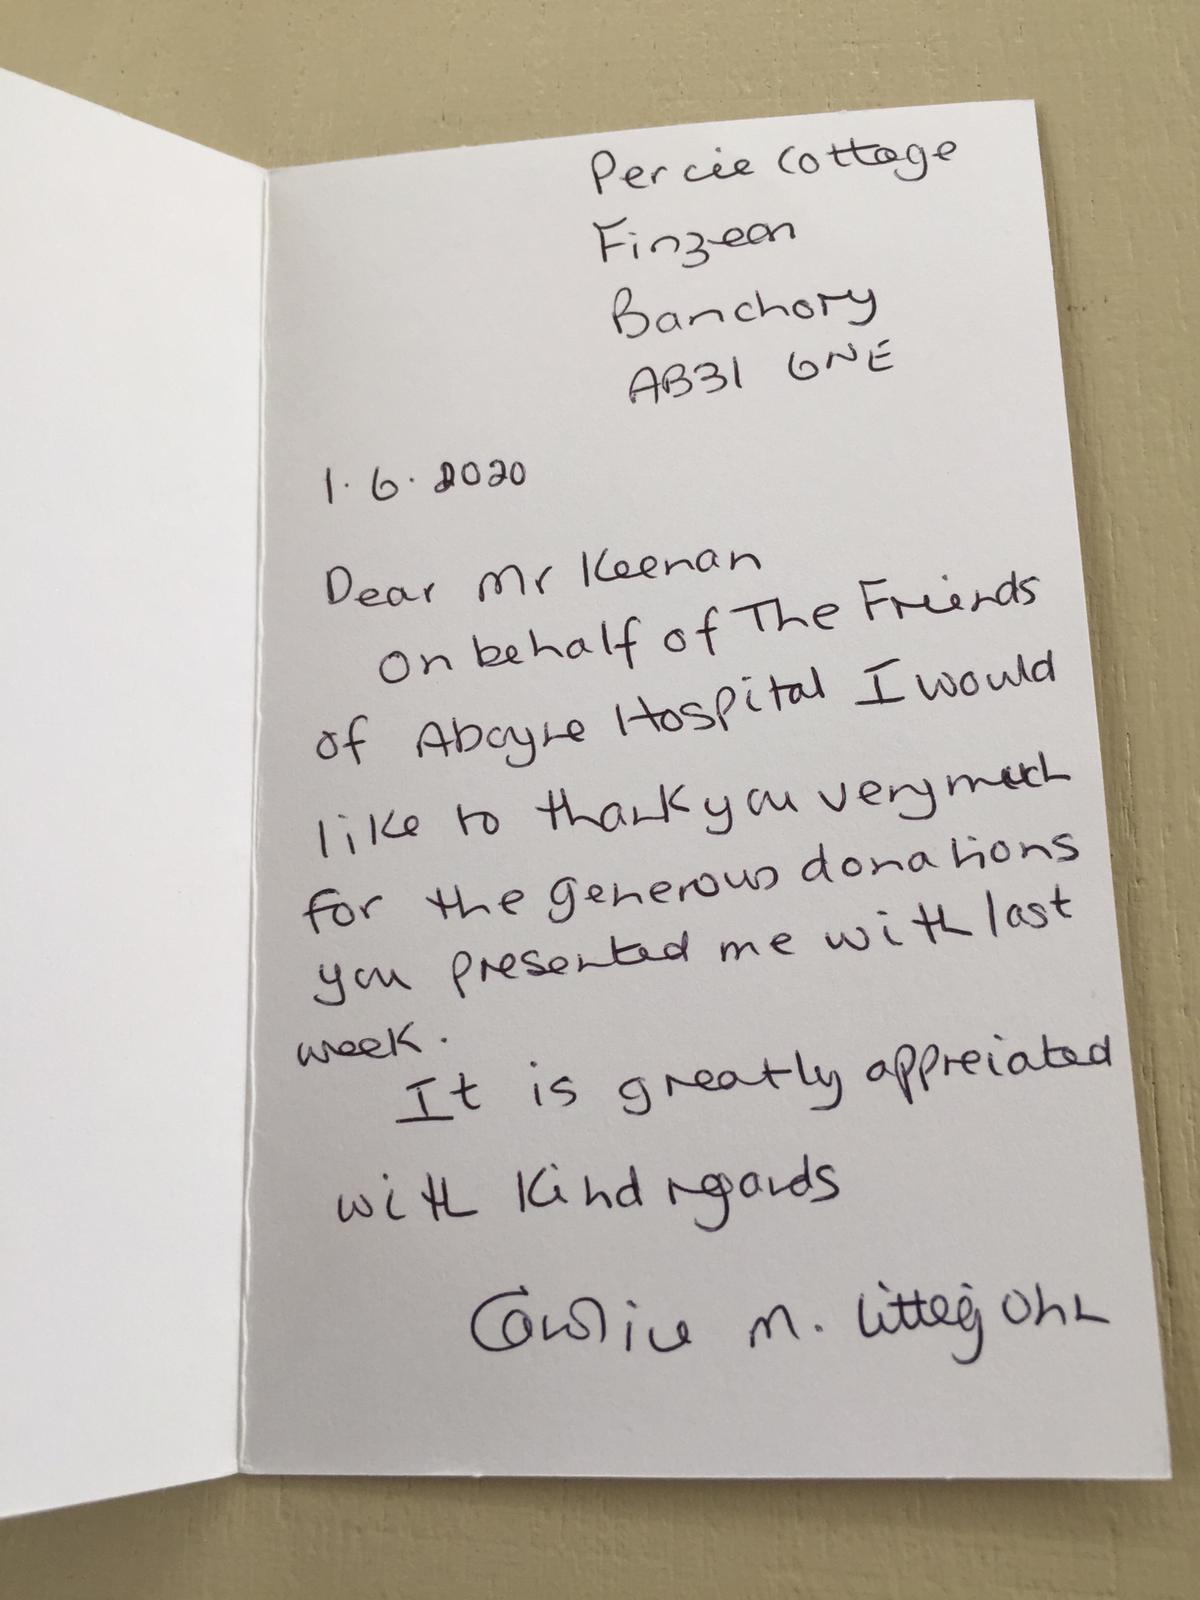 Percie Cottage
Finzean
Banchory
AB31 6NE
1.6.2020
Dear Mr Keenan
On behalf of The Friends
of Aboyne Hospital I would
like to thank you very much
for the generous donations
you presented me with last
week.
It is greatly appreiated
with Kind regards
Caroline M. Littlejohn